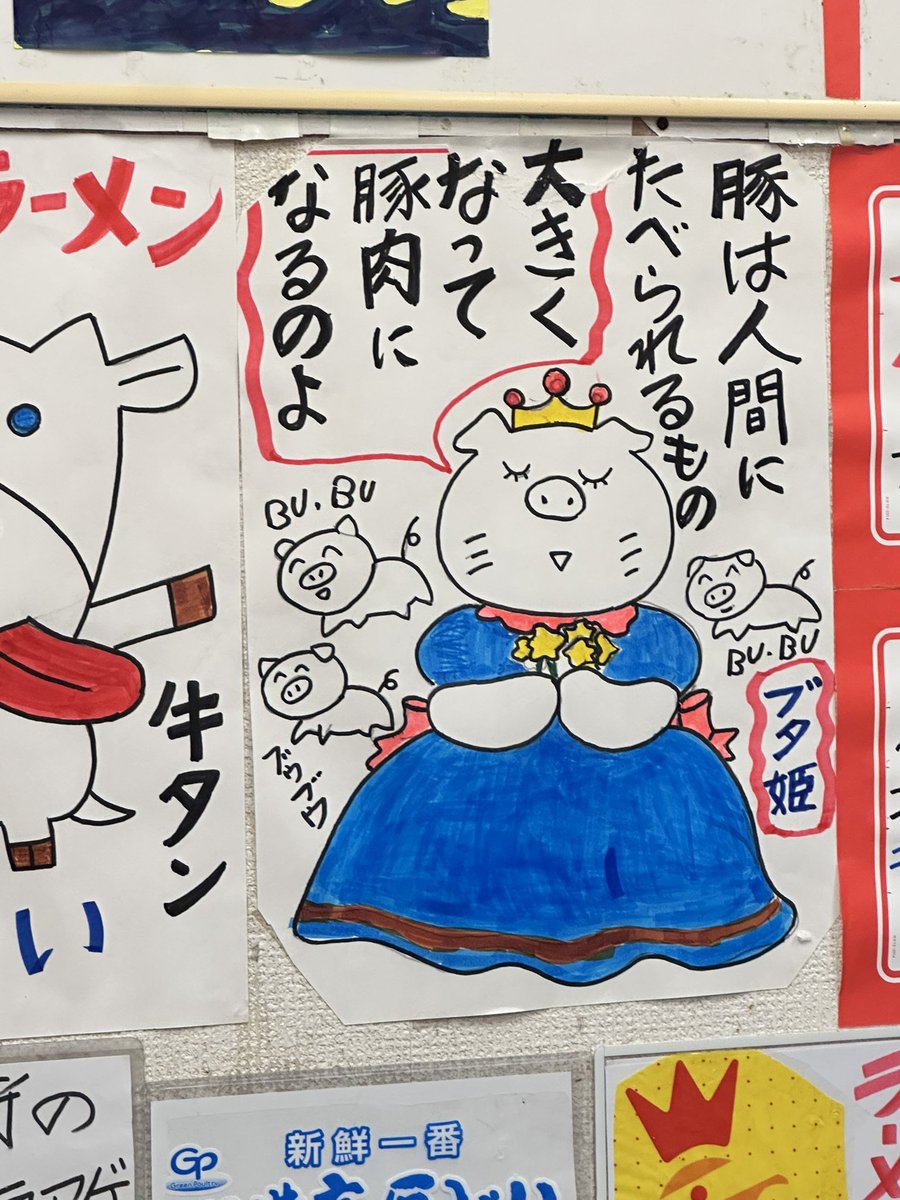 豚は人間に
たべられるもの
大きく
なって
豚肉に
なるのよ
BU.BU
BU.BU
ブウブウ
ブタ姫
ラーメン
牛タン
い
新鮮一番
GP
Green Poultry